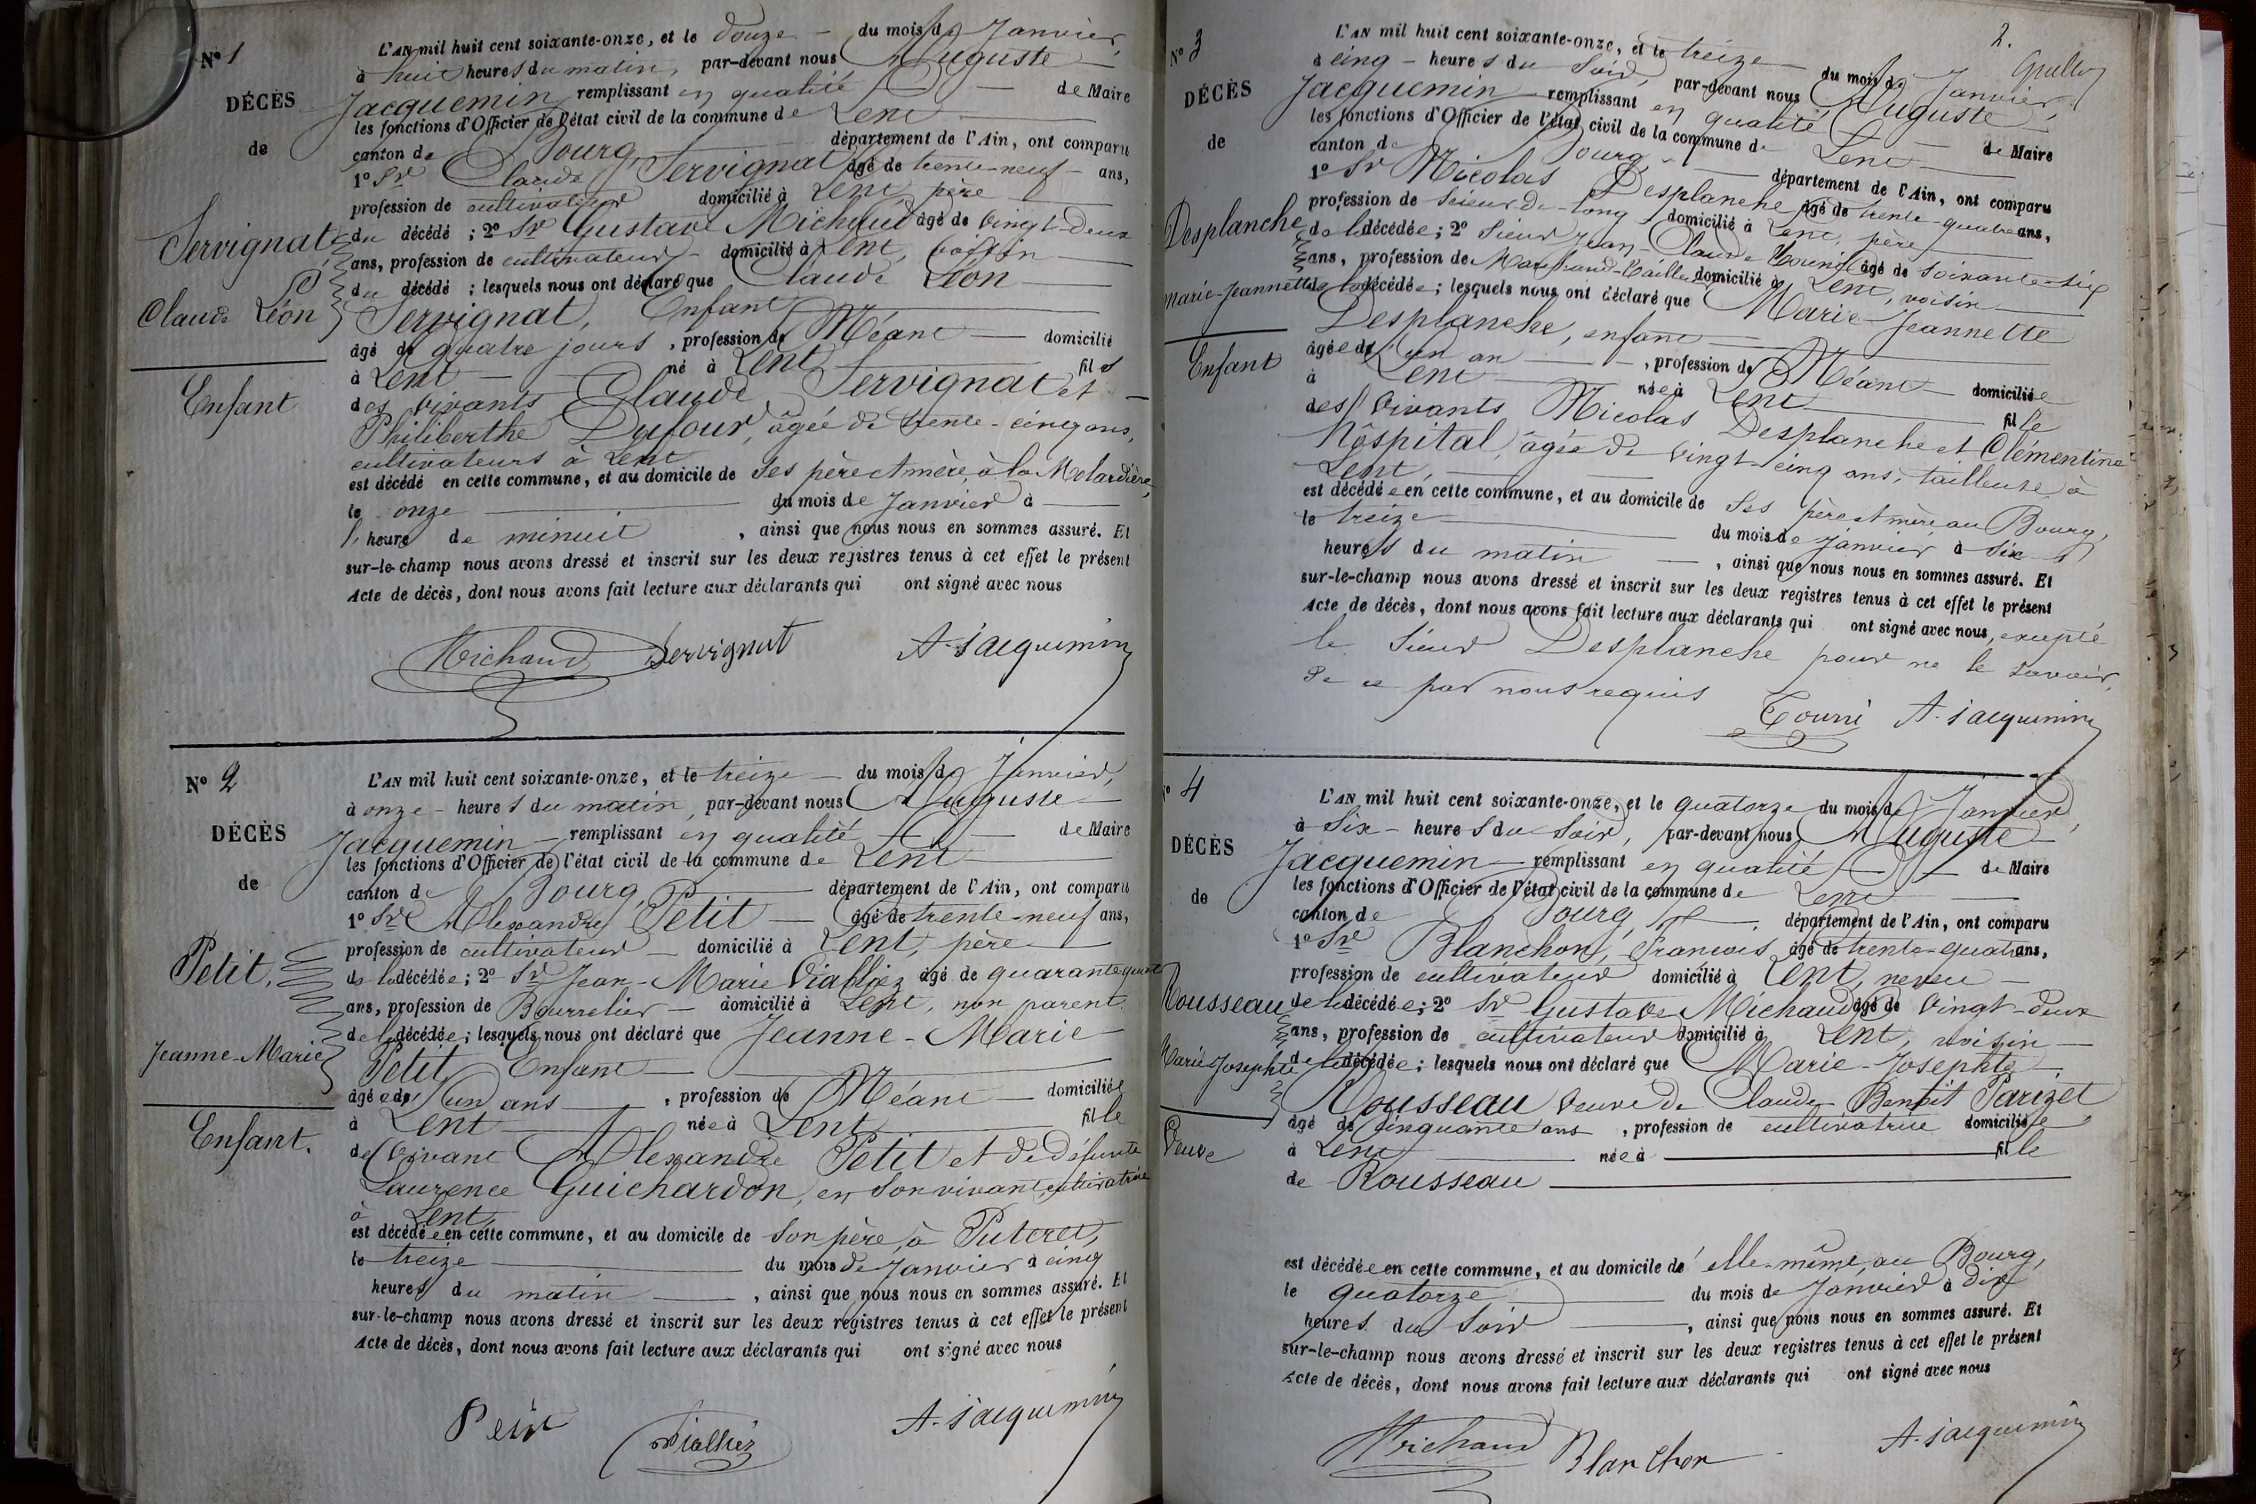 N° 1
DÉCÈS
de
Servignat
Claude Léon
Enfant
L'AN mil huit cent soixante-onze, et le douze du mois de Janvier,
à huit heures du matin, par-devant nous Auguste
Jacquemin remplissant en qualité de Maire
les fonctions d'Officier de l'état civil de la commune de Lent
canton de Bourg, département de l'Ain, ont comparu
1° Sr Claude Servignat âgé de trente-neuf ans,
profession de cultivateur domicilié à Lent, père
du décédé ; 2° Sr Gustave Michaud âgé de vingt-deux
ans, profession de cultivateur domicilié à Lent, voisin
du décédé ; lesquels nous ont déclaré que Claude Léon
Servignat, Enfant
âgé de quatre jours, profession de Néant domicilié
à Lent né à Lent fils
des vivants Claude Servignat et
Philiberthe Dufour, âgée de trente-cinq ans,
cultivateurs à Lent
est décédé en cette commune, et au domicile de ses père et mère, à la Molardière,
le onze du mois de Janvier à
l'heure de minuit, ainsi que nous nous en sommes assuré. Et
sur-le-champ nous avons dressé et inscrit sur les deux registres tenus à cet effet le présent
Acte de décès, dont nous avons fait lecture aux déclarants qui ont signé avec nous
Michaud Servignat A. Jacquemin
N° 2
DÉCÈS
de
Petit,
Jeanne-Marie
Enfant.
L'AN mil huit cent soixante-onze, et le treize du mois de Janvier,
à onze heures du matin, par-devant nous Auguste
Jacquemin remplissant en qualité de Maire
les fonctions d'Officier de l'état civil de la commune de Lent
canton de Bourg, département de l'Ain, ont comparu
1° Sr Alexandre Petit âgé de trente-neuf ans,
profession de cultivateur domicilié à Lent, père
de la décédée ; 2° Sr Jean-Marie Vialliez âgé de quarante quatre
ans, profession de Bourrelier domicilié à Lent, non parent
de la décédée ; lesquels nous ont déclaré que Jeanne-Marie
Petit, Enfant
âgée de un ans, profession de Néant domiciliée
à Lent née à Lent fille
de vivant Alexandre Petit et de défunte
Laurence Guichardon, en son vivant, cultivatrice
à Lent,
est décédée en cette commune, et au domicile de son père, à Puteret,
le treize du mois de Janvier à cinq
heures du matin, ainsi que nous nous en sommes assuré. Et
sur-le-champ nous avons dressé et inscrit sur les deux registres tenus à cet effet le présent
Acte de décès, dont nous avons fait lecture aux déclarants qui ont signé avec nous
Petit Vialliez A. Jacquemin
2.
N° 3
DÉCÈS
de
Desplanche
Marie-Jeannette
Enfant
L'AN mil huit cent soixante-onze, et le treize du mois de Janvier,
à cinq heures du soir, par-devant nous Auguste
Jacquemin remplissant en qualité de Maire
les fonctions d'Officier de l'état civil de la commune de Lent
canton de Bourg, département de l'Ain, ont comparu
1° Sr Nicolas Desplanche âgé de trente-quatre ans,
profession de scieur de long domicilié à Lent, père
de la décédée ; 2° Sieur Jean-Claude Tourni âgé de soixante-six
ans, profession de Marchand-Tailleur domicilié à Lent, voisin
de la décédée ; lesquels nous ont déclaré que Marie-Jeannette
Desplanche, enfant
âgée de un an, profession de Néant domiciliée
à Lent née à Lent fille
des vivants Nicolas Desplanche et Clémentine
Hôspital, âgée de vingt-cinq ans, tailleuse, à
Lent,
est décédée en cette commune, et au domicile de ses père et mère au Bourg,
le treize du mois de janvier à six
heures du matin, ainsi que nous nous en sommes assuré. Et
sur-le-champ nous avons dressé et inscrit sur les deux registres tenus à cet effet le présent
Acte de décès, dont nous avons fait lecture aux déclarants qui ont signé avec nous, excepté
le Sieur Desplanche pour ne le savoir,
de ce par nous requis
Tourni A. Jacquemin
N° 4
DÉCÈS
de
Rousseau
Marie-Josephte
Veuve
L'AN mil huit cent soixante-onze, et le quatorze du mois de Janvier,
à six heures du soir, par-devant nous Auguste
Jacquemin remplissant en qualité de Maire
les fonctions d'Officier de l'état civil de la commune de Lent
canton de Bourg, département de l'Ain, ont comparu
1° Sr Blanchon, Francois âgé de trente-quatre ans,
profession de cultivateur domicilié à Lent, neveu
de la décédée ; 2° Sr Gustave Michaud âgé de vingt-deux
ans, profession de cultivateur domicilié à Lent, voisin
de la décédée ; lesquels nous ont déclaré que Marie-Josephte
Rousseau veuve de Claude Benoit Parizet
âgé de cinquante ans, profession de cultivatrice domiciliée
à Lent née à fille
de Rousseau
est décédée en cette commune, et au domicile de elle-même, au Bourg,
le quatorze du mois de Janvier à dix
heures du soir, ainsi que nous nous en sommes assuré. Et
sur-le-champ nous avons dressé et inscrit sur les deux registres tenus à cet effet le présent
Acte de décès, dont nous avons fait lecture aux déclarants qui ont signé avec nous
Michaud Blanchon A. Jacquemin